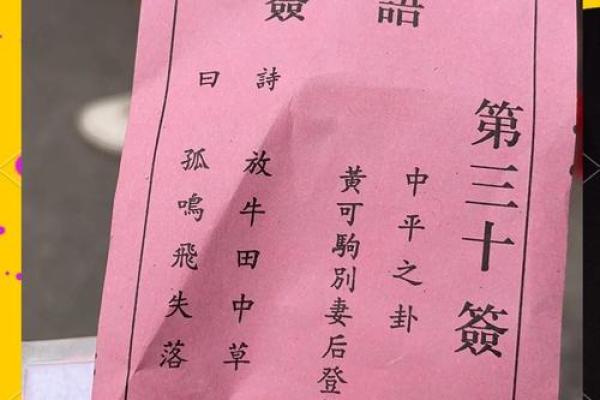 簽語
第三十簽
中平之卦
黃可駒別妻后登
詩曰
放牛田中草
孤鳴飛失落